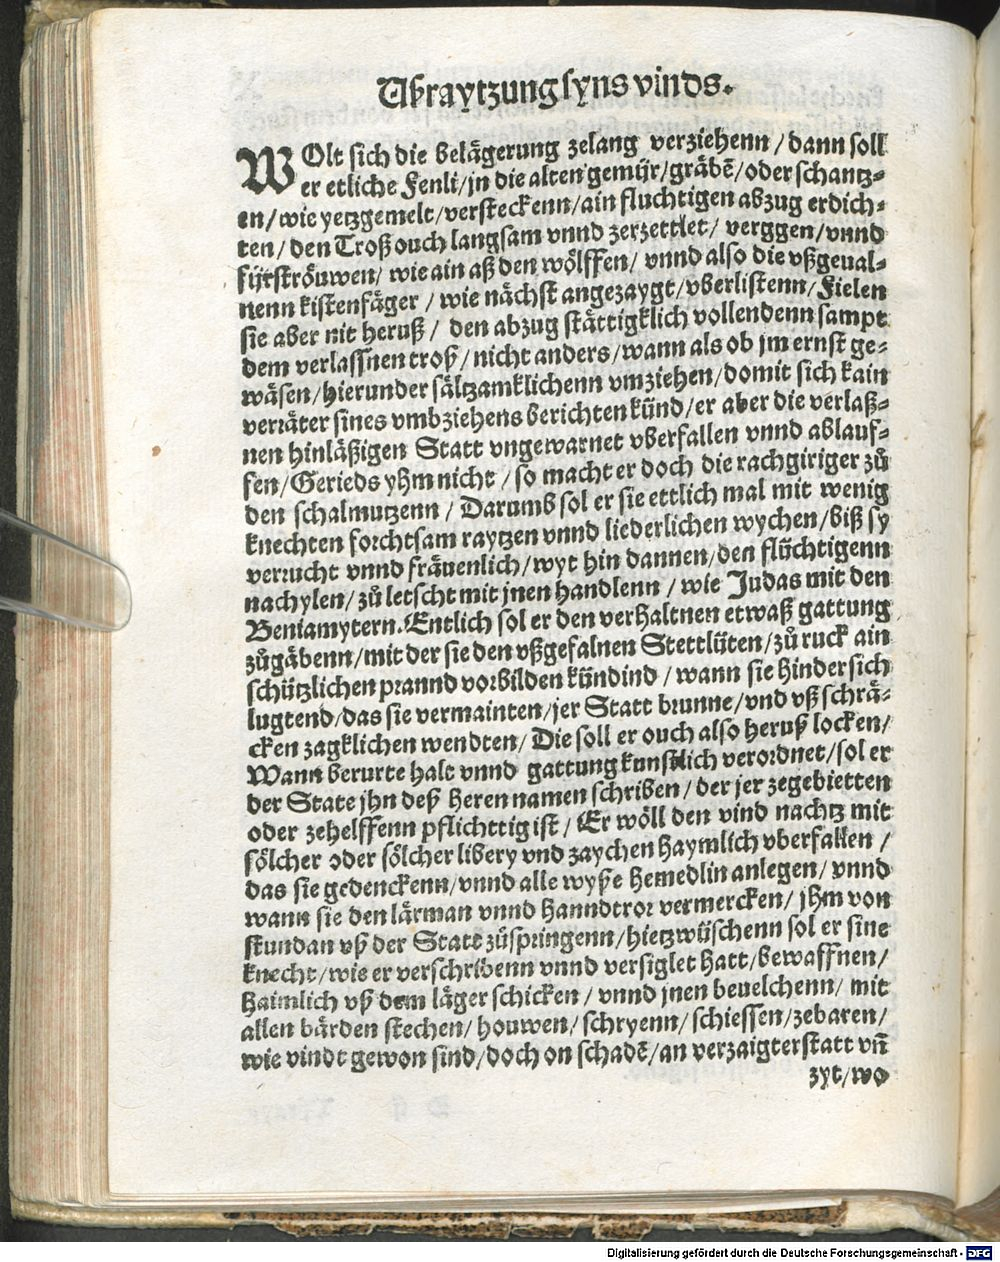 Abraytzung syns vinds.
WOlt sich die belägerung zelang verziehenn / dann soll
er etliche Fenli/jn die alten gemür/gräbē/oder schantz⸗
en/wie yetzgemelt/versteckenn/ain fluchtigen abzug erdich⸗
ten/ den Troß ouch langsam vnnd zerzettlet/ verggen/vnnd
fürströuwen/ wie ain aß den wölffen/ vnnd also die vßgeual⸗
nenn kistenfäger / wie nächst angezaygt/vberlistenn/Fielen
sie aber nit heruß / den abzug stättigklich vollendenn sampt
dem verlassnen troß / nicht anders/wann als ob jm ernst ge⸗
wäsen/hierunder sältzamklichenn vmziehen/domit sich kain
verräter sines vmbziehens berichten künd/er aber die verlaß⸗
nen hinläßigen Statt vngewarnet vberfallen vnnd ablauf⸗
fen/Gerieds yhm nicht / so macht er doch die rachgiriger zů
den schalmutzenn / Darumb sol er sie ettlich mal mit wenig
knechten forchtsam raytzen vnnd liederlichen wychen/biß sy
verrucht vnnd fräuenlich/wyt hin dannen/den flüchtigenn
nachylen/zů letscht mit jnen handlenn / wie Judas mit den
Beniamytern.Entlich sol er den verhaltnen etwaß gattung
zůgäbenn/mit der sie den vßgefalnen Stettlüten/zů ruck ain
schützlichen prannd vorbilden kündind / wann sie hindersich
lugtend/das sie vermainten/jer Statt brunne/vnd vß schrä⸗
cken zagklichen wendten/ Die soll er ouch also heruß locken/
Wann berurte halt vnnd gattung kunstlich verordnet/sol er
der State jhn deß Heren namen schriben / der jer zegebietten
oder zehelffenn pflichttig ist / Er wöll den vind nachtz mit
sölcher oder sölcher libery vnd zaychen haymlich vberfallen /
das sie gedenckenn/vnnd alle wyße Hemedlin anlegen/ vnnd
wann sie den lärman vnnd Hanndtror vermercken/ jhm von
stundan vß der Statt zůspringenn/hietzwüschenn sol er sine
knecht/wie er verschribenn vnnd versiglet hatt/bewaffnen/
haimlich vß dem läger schicken / vnnd jnen beuelchenn/ mit
allen bärden stechen/ houwen/ schryenn/ schiessen/zebaren/
wie vindt gewon sind/doch on schadē/an verzaigter statt vñ
zyt/wo
Digitalisierung gefördert durch die Deutsche Forschungsgemeinschaft - DFG